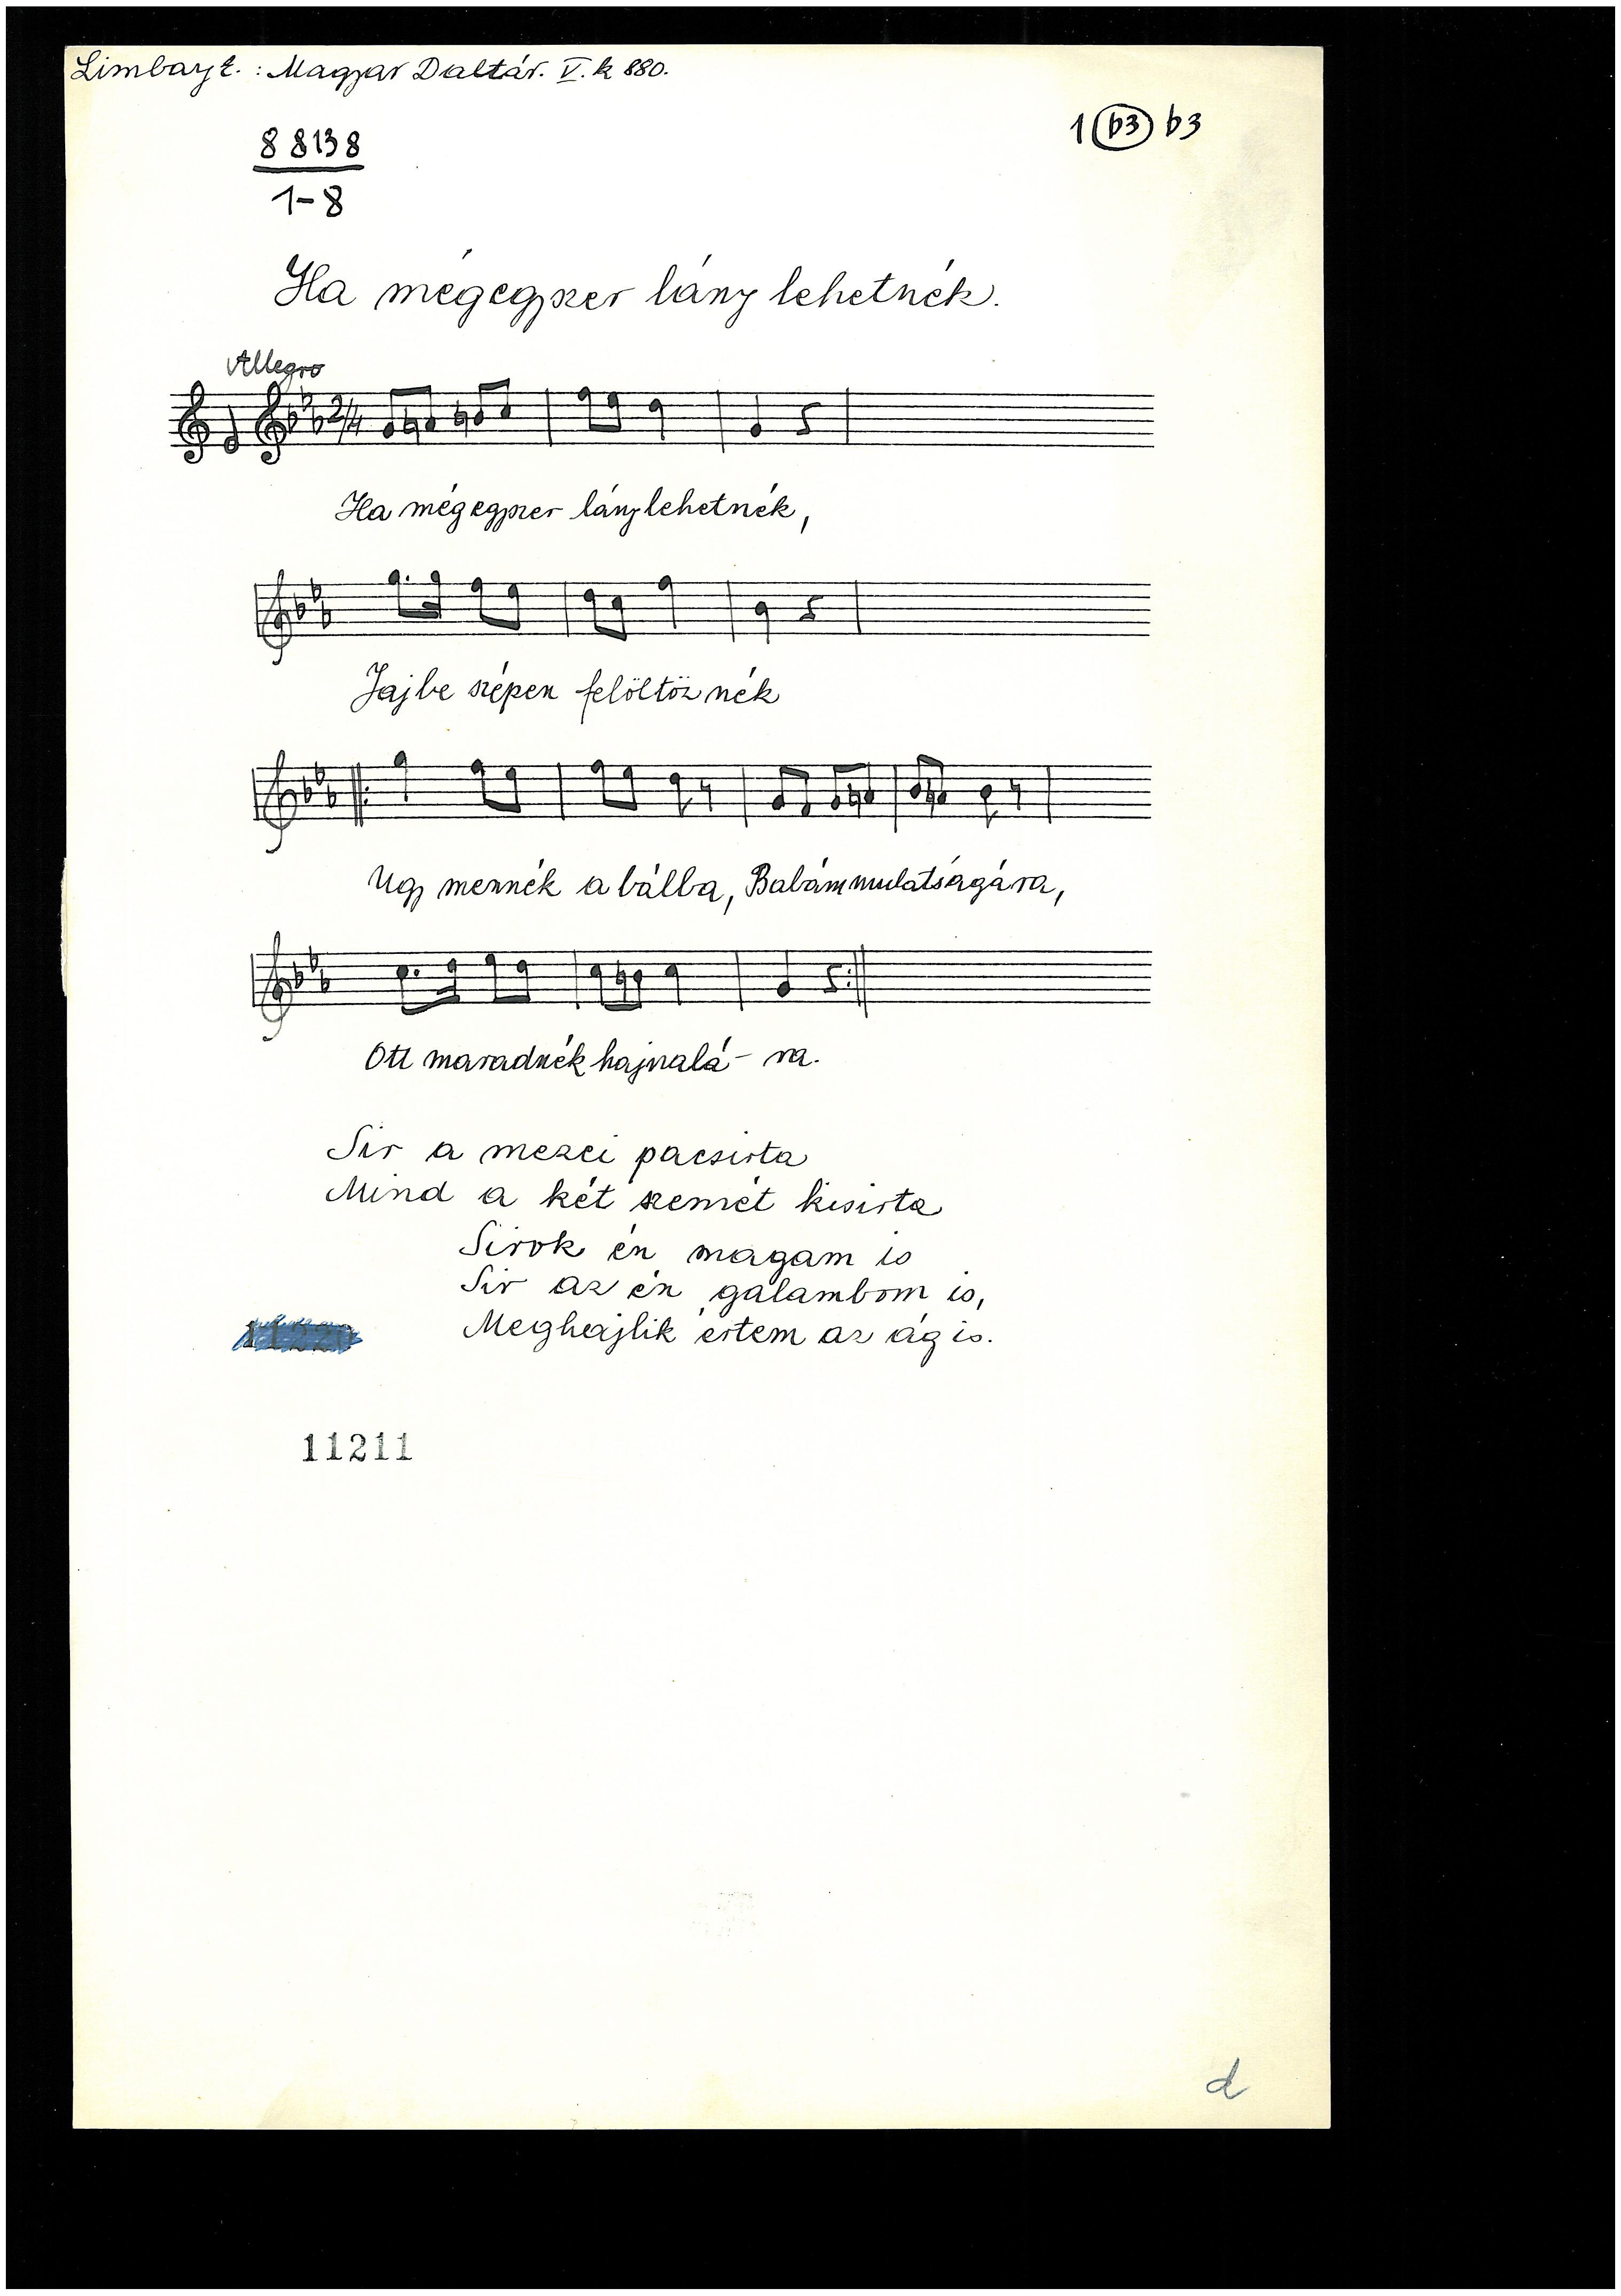 Limbay E.: Magyar Daltár. V. k 880.
1 (b3) b3
8 8 13 8
1-8
Ha mégegyszer lány lehetnék.
Allegro
2/4
Ha mégegyszer lány lehetnék,
Jajbe szépen felöltöznék
Ugy mennék a bálba, Babám mulatságára,
Ott maradnék hajnalá- ra.
Sir a mezei pacsirta
Mind a két szemét kisirta
Sirok én magam is
Sir az én galambom is,
Meghajlik értem az ág is.
11211
d